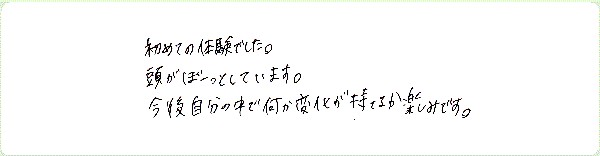 初めての体験でした。
頭がぼーっとしています。
今後自分の中で何か変化が持てるか楽しみです。